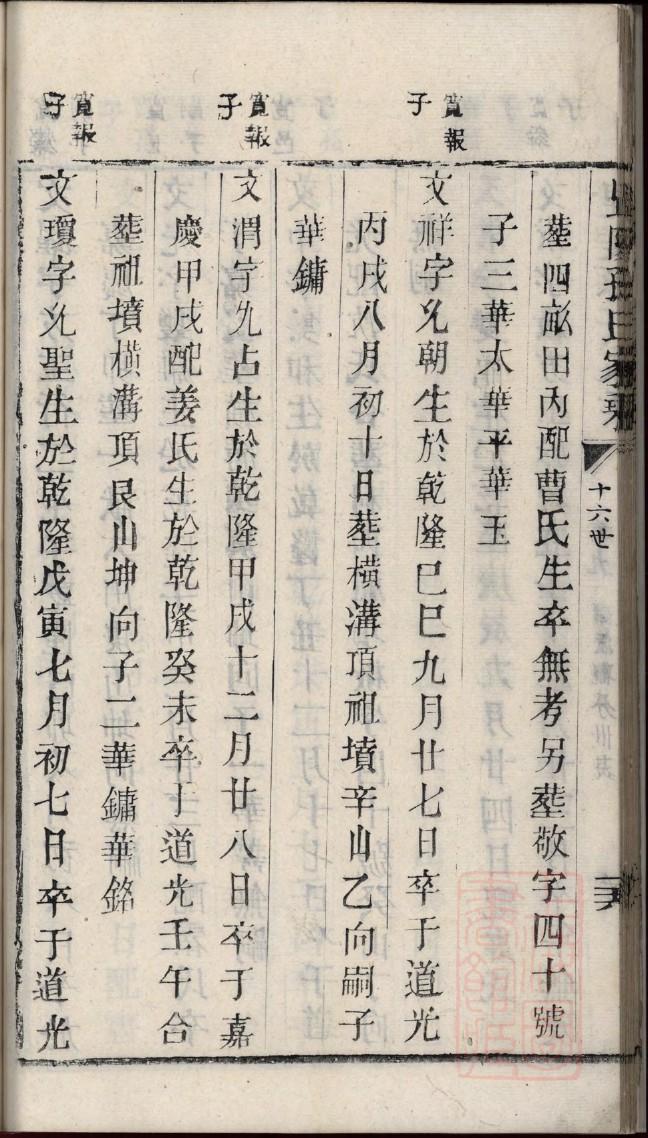 孫氏家乘
十六世
葬四畝田內配曹氏生卒無考另葬敬字四十號
子三華太華平華玉
寬報子
文祥字允朝生於乾隆己巳九月廿七日卒于道光
丙戌八月初十日葬橫溝頂祖墳辛山乙向嗣子
華鏞
寬報子
文渭字允占生於乾隆甲戌十二月廿八日卒于嘉
慶甲戌配姜氏生於乾隆癸未卒于道光壬午合
葬祖墳橫溝頂艮山坤向子二華鏞華銘
寬報子
文瓊字允聖生於乾隆戊寅七月初七日卒于道光